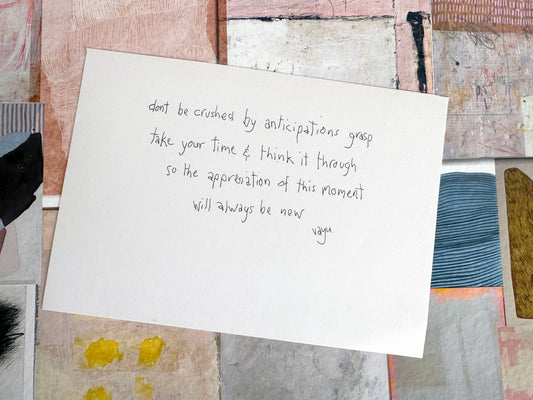 dont be crushed by anticipations grasp
take your time & think it through
so the appresiation of this moment
will always be new
vayu